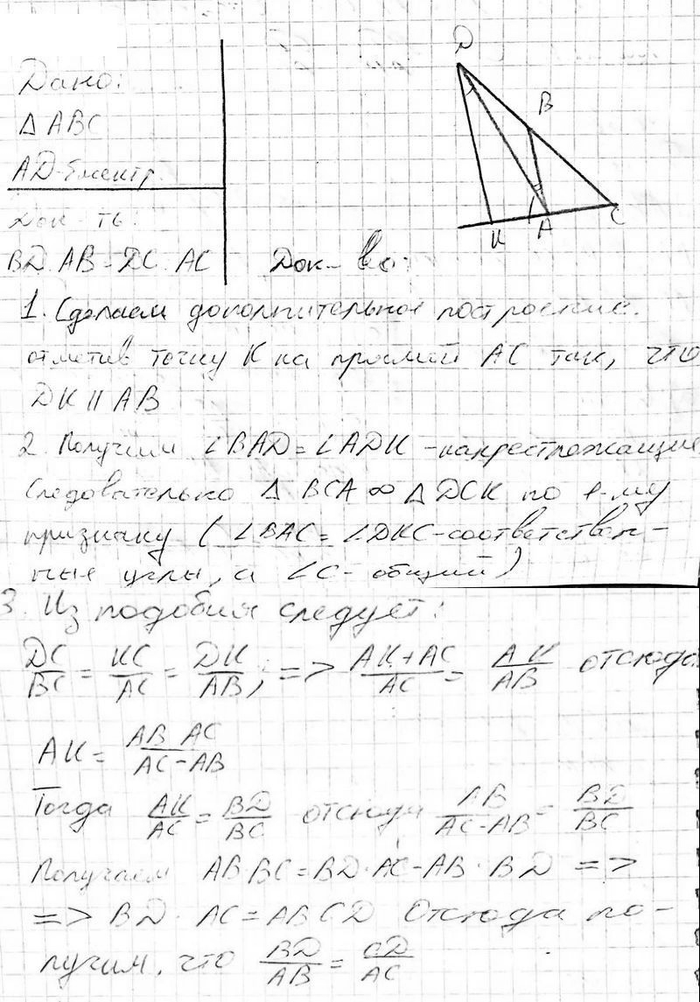 Дано:
△ ABC
AD-биссектр.
Док-ть:
BD:AB=DC:AC
Док-во:
D
B
K
A
C
1. Сделаем дополнительное построение.
отметив точку K на прямий AC так, что
DK || AB
2. Получим ∠BAD=∠ADK -накрестлежащие
Следовательно △ BCA ∞ △ DCK по 1-му
признаку (∠BAC=∠DKC-соответствен-
ные углы, а ∠C- общий)
3. Из подобия следует:
DC/BC = KC/AC = DK/AB; => AK+AC/AC = AK/AB отсюда
AK= AB AC/AC-AB
Тогда AK/AC = BD/BC отсюда AB/AC-AB = BD/BC
Получаем AB BC=BD·AC-AB·BD =>
=> BD· AC=AB CD Отсюда по-
лучим, что BD/AB = CD/AC